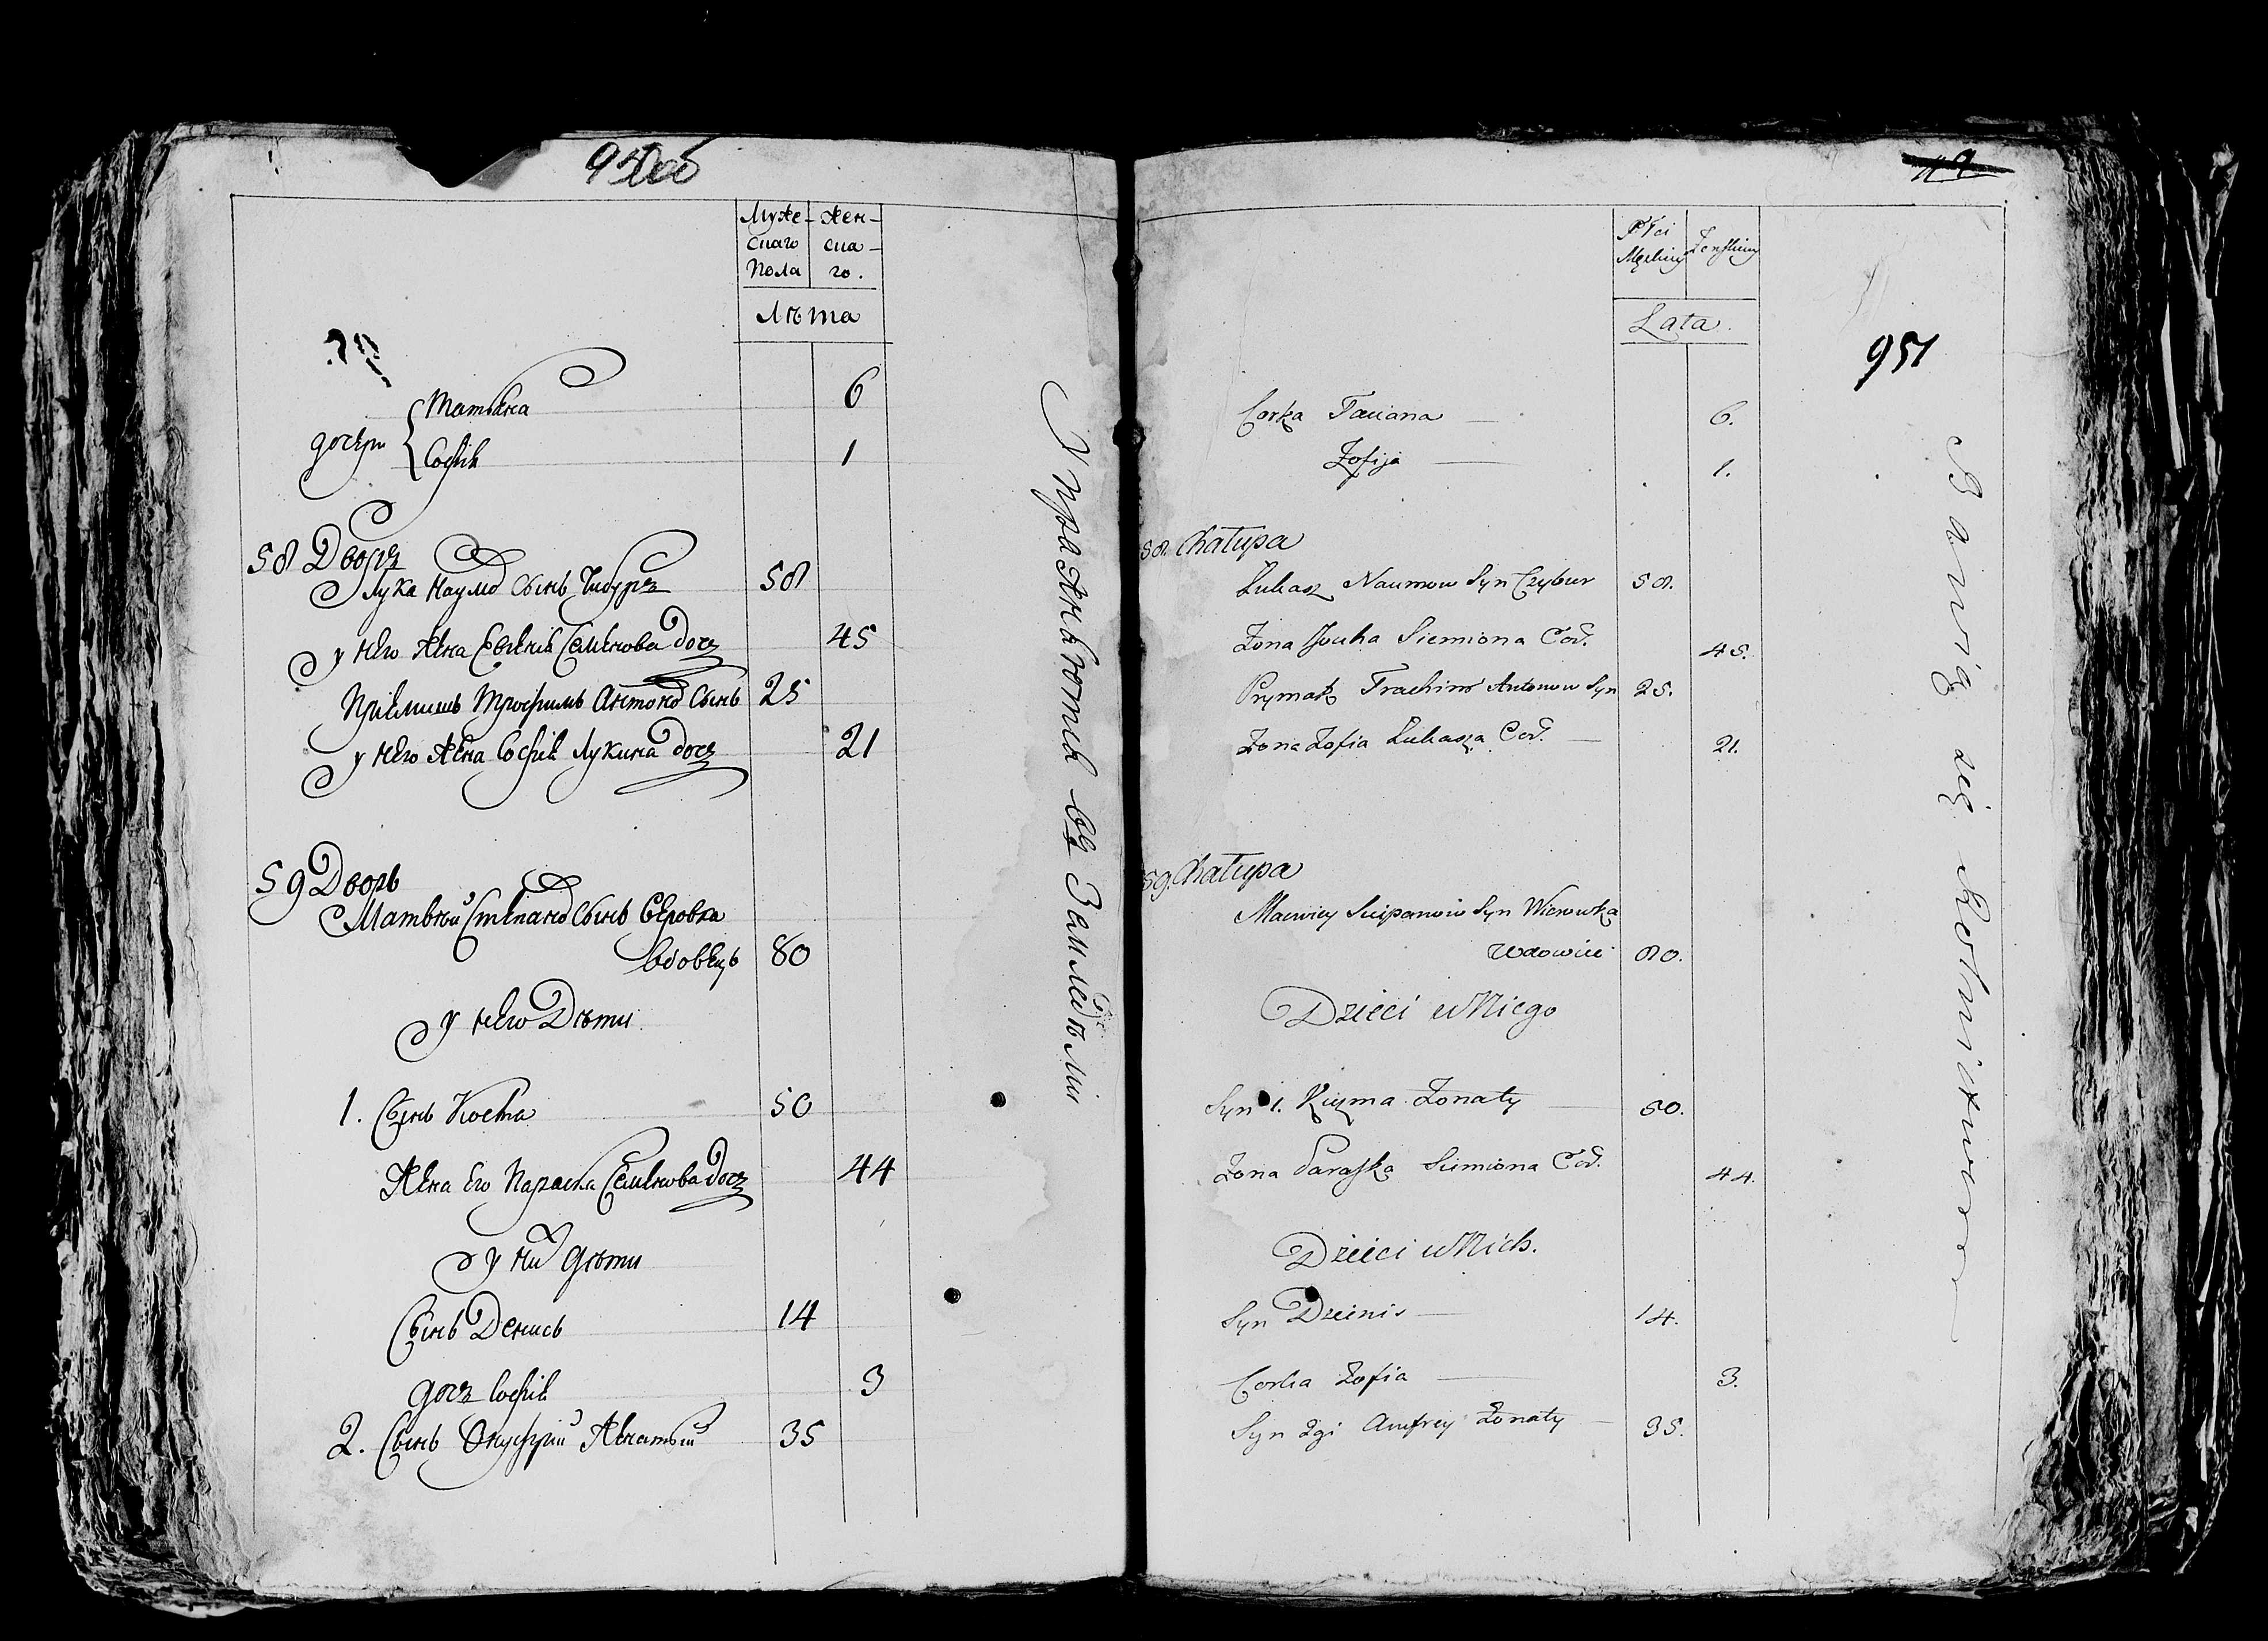 950об
Муже- Жен-
скаго ска-
Пола го.
Лѣта
Татьяна 6
дочери
Софія 1
58 Дворъ
Лука Наумов Сынъ Цыбуръ 58
у него Жена Евгенія Семенова дочь 45
Пріемышъ Трофимъ Антонов Сынъ 25
у него Жена Софія Лукина дочь 21
59 Дворъ
Матвѣй Степанов Сынъ Веровка
Вдовецъ 80
у него Дѣти
1. Сынъ Косма 50
Жена Его Параска Семенова дочь 44
у них дѣти
Сынъ Денисъ 14
дочь Софія 3
2. Сынъ Онуфрій Женатый 35
Упражняются въ Земледѣліи
951
Płci
Męskiey Żenskiey
Lata.
Corka Taciana 6.
Zofija 1.
58. Chałupa
Łukasz Naumow Syn Czybur 58.
Żona Jouha Siemiona Cor. 45.
Prymak Trachim Antonow Syn 25.
Żona Zofia Łukasza Cor. 21.
59. Chałupa
Macwiey Sciepanow Syn Wierowka
Wdowiec 80.
Dzieci u Niego
Syn 1. Kuzma Żonaty 50.
Żona Paraska Siemiona Cor. 44.
Dzieci u Nich.
Syn Dzienis 14.
Corka Zofia 3.
Syn 2gi Anufrey Żonaty 35.
Bawią się Rolnictwem